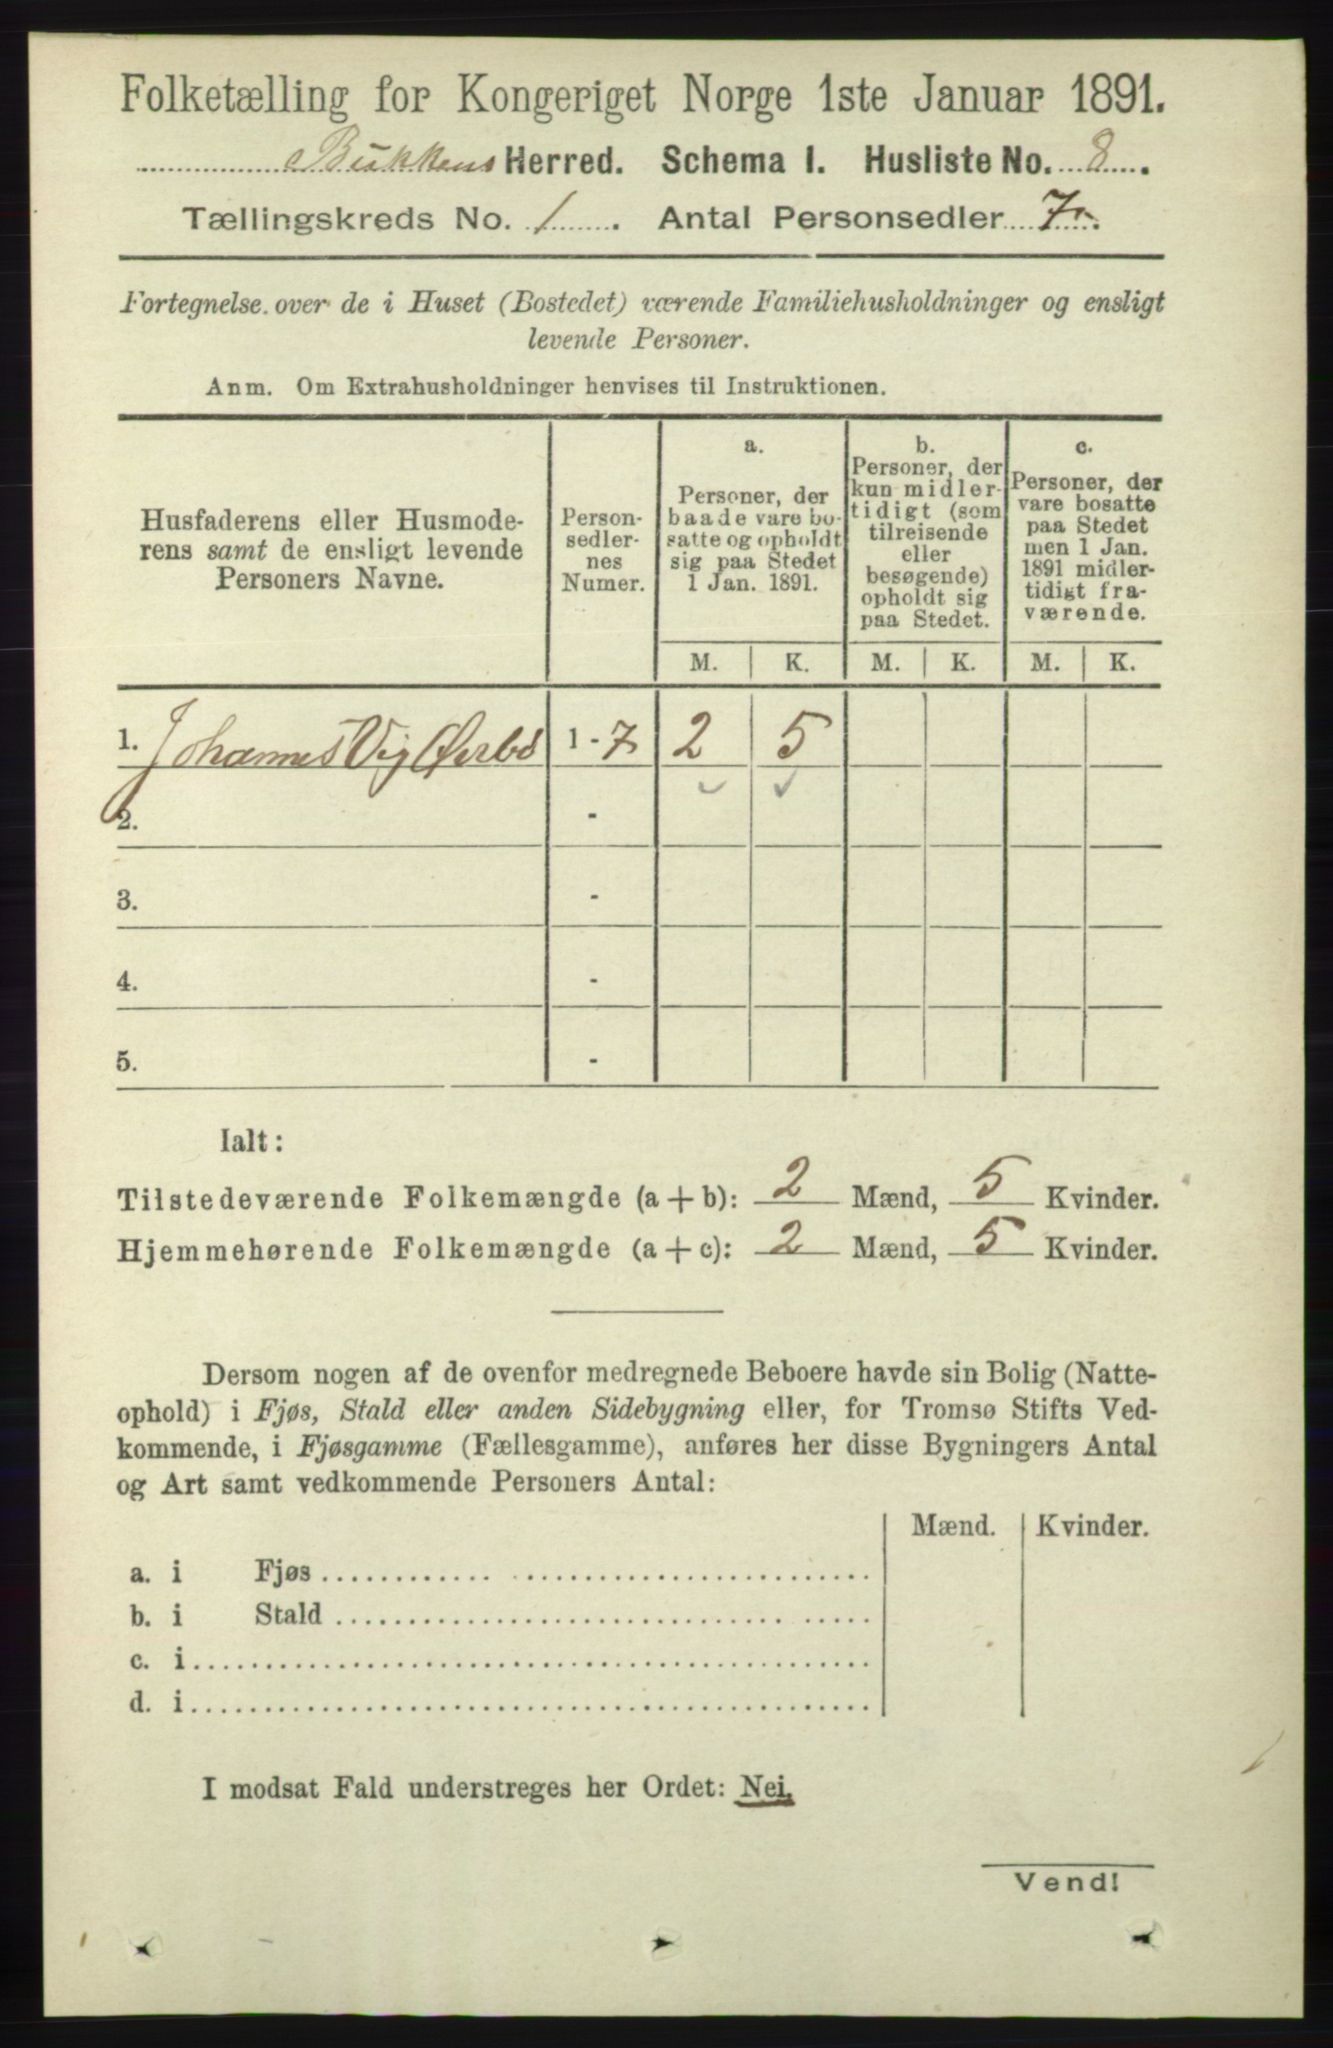 Folketælling for Kongeriget Norge 1ste Januar 1891.
Bukkens Herred. Schema I. Husliste No. 8.
Tællingskreds No. 1. Antal Personsedler 7.
Fortegnelse over de i Huset (Bostedet) værende Familiehusholdninger og ensligt
levende Personer.
Anm. Om Extrahusholdninger henvises til Instruktionen.
Husfaderens eller Husmode-
rens samt de ensligt levende
Personers Navne.
Person-
sedler-
nes
Numer.
a.
Personer, der
baade vare bo-
satte og opholdt
sig paa Stedet
1 Jan. 1891.
b.
Personer, der
kun midler-
tidigt (som
tilreisende
eller
besøgende)
opholdt sig
paa Stedet.
c.
Personer, der
vare bosatte
paa Stedet
men 1 Jan.
1891 midler-
tidigt fra-
værende.
M. K. M. K. M. K.
1. Johannes Vig Østbø 1 - 7 2 5
2. -
3. -
4. -
5. -
Ialt:
Tilstedeværende Folkemængde (a + b): 2 Mænd, 5 Kvinder.
Hjemmehørende Folkemængde (a + c): 2 Mænd, 5 Kvinder.
Dersom nogen af de ovenfor medregnede Beboere havde sin Bolig (Natte-
ophold) i Fjøs, Stald eller anden Sidebygning eller, for Tromsø Stifts Ved-
kommende, i Fjøsgamme (Fællesgamme), anføres her disse Bygningers Antal
og Art samt vedkommende Personers Antal:
Mænd. Kvinder.
a. i Fjøs
b. i Stald
c. i
d. i
I modsat Fald understreges her Ordet: Nei.
Vend!